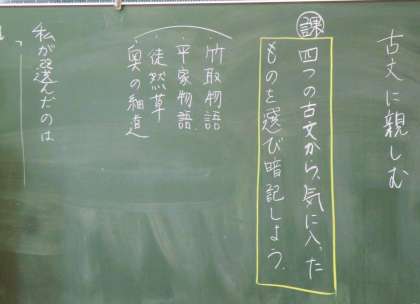 古文に親しむ
課
四つの古文から、気に入った
ものを選び暗記しよう。
・竹取物語
・平家物語
・徒然草
・奥の細道
私が選んだのは
「